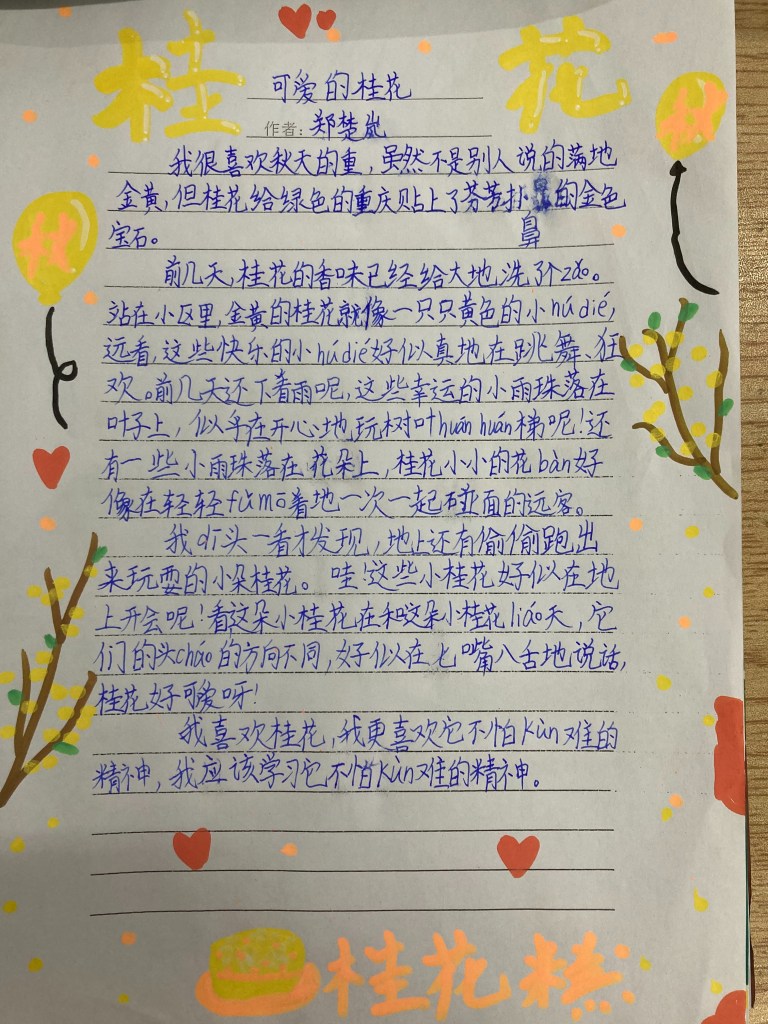 桂花
可爱的桂花
作者:郑楚岚
我很喜欢秋天的重,虽然不是别人说的满地
金黄,但桂花给绿色的重庆贴上了芬芳扑鼻的金色
宝石。
前几天,桂花的香味已经给大地洗了个zǎo。
站在小区里,金黄的桂花就像一只只黄色的小húdié,
远看,这些快乐的小húdié好似真地在跳舞、狂
欢。前几天还下着雨呢,这些幸运的小雨珠落在
叶子上,似乎在开心地玩树叶huáhuá梯呢!还
有一些小雨珠落在花朵上,桂花小小的花bàn好
像在轻轻fǔmō着地一次一起碰面的远客。
我低头一看才发现,地上还有偷偷跑出
来玩耍的小朵桂花。哇!这些小桂花好似在地
上开会呢!看这朵小桂花在和这朵小桂花liáo天,它
们的头cháo的方向不同,好似在七嘴八舌地说话,
桂花好可爱呀!
我喜欢桂花,我更喜欢它不怕kùn难的
精神,我应该学习它不怕kùn难的精神。
桂花糕